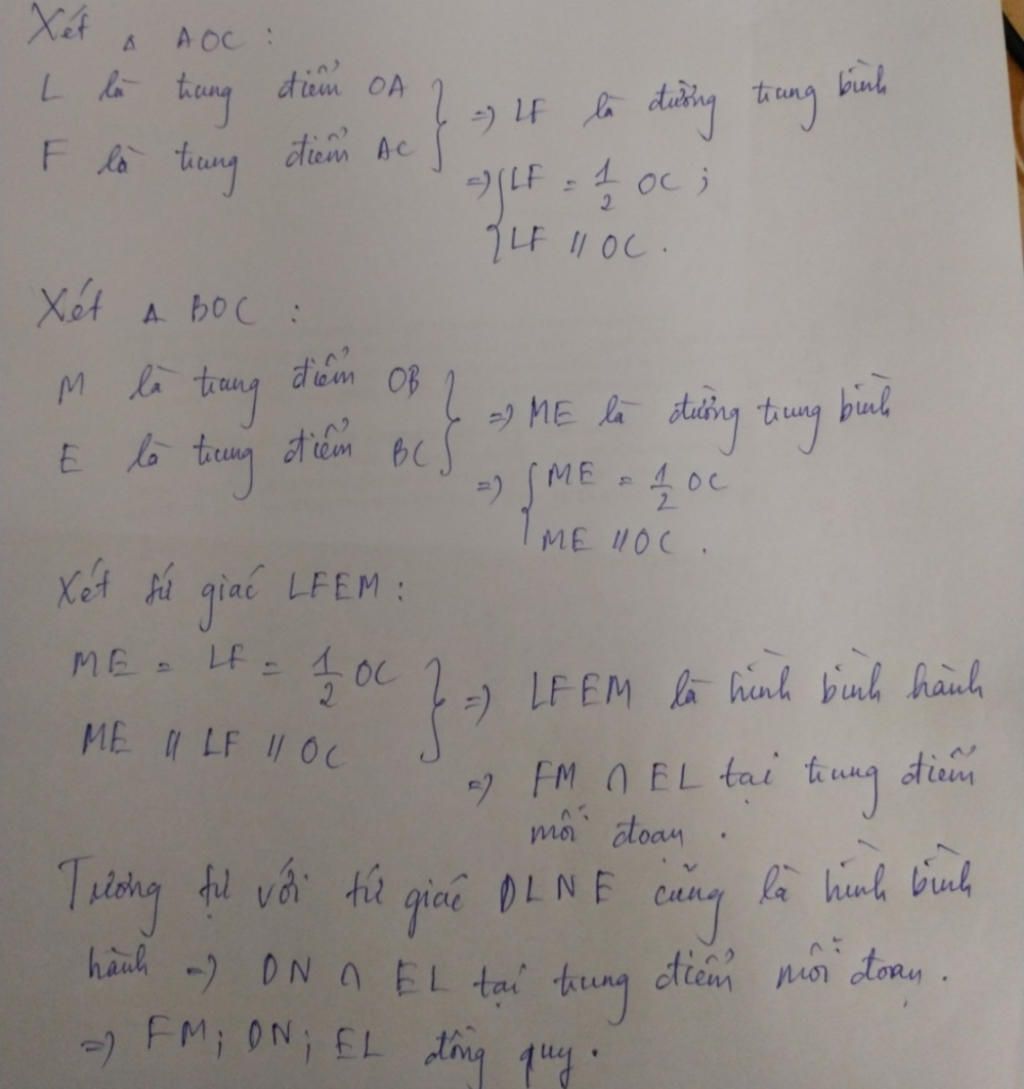 Xét Δ AOC :
L là trung điểm OA
F là trung điểm AC } => LF là đường trung bình
=> { LF = 1/2 OC ;
LF // OC .
Xét Δ BOC :
M là trung điểm OB
E là trung điểm BC } => ME là đường trung bình
=> { ME = 1/2 OC
ME // OC .
Xét tứ giác LFEM :
ME = LF = 1/2 OC
ME // LF // OC } => LFEM là hình bình hành
=> FM ∩ EL tại trung điểm
mỗi đoạn .
Tương tự với tứ giác DLNE cũng là hình bình
hành => DN ∩ EL tại trung điểm mỗi đoạn .
=> FM ; DN ; EL đồng quy .